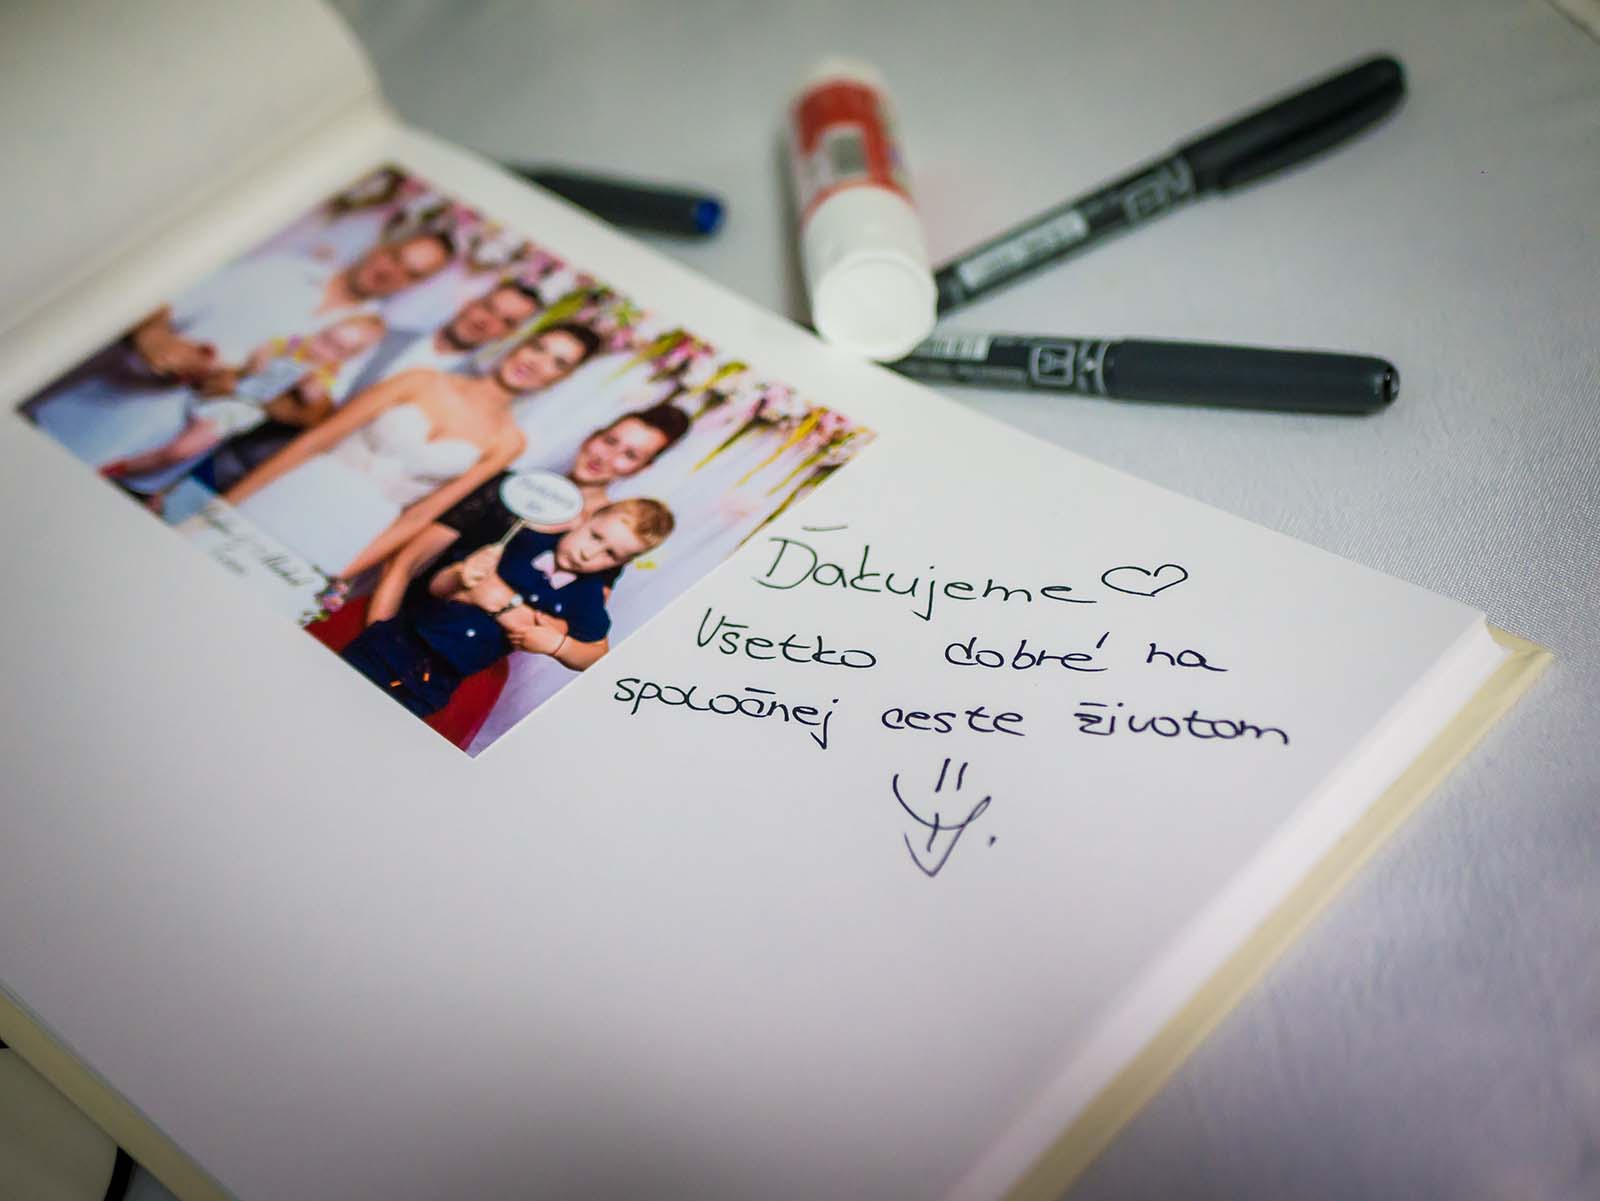 Ďakujeme ♡
Všetko dobré na
spoločnej ceste životom